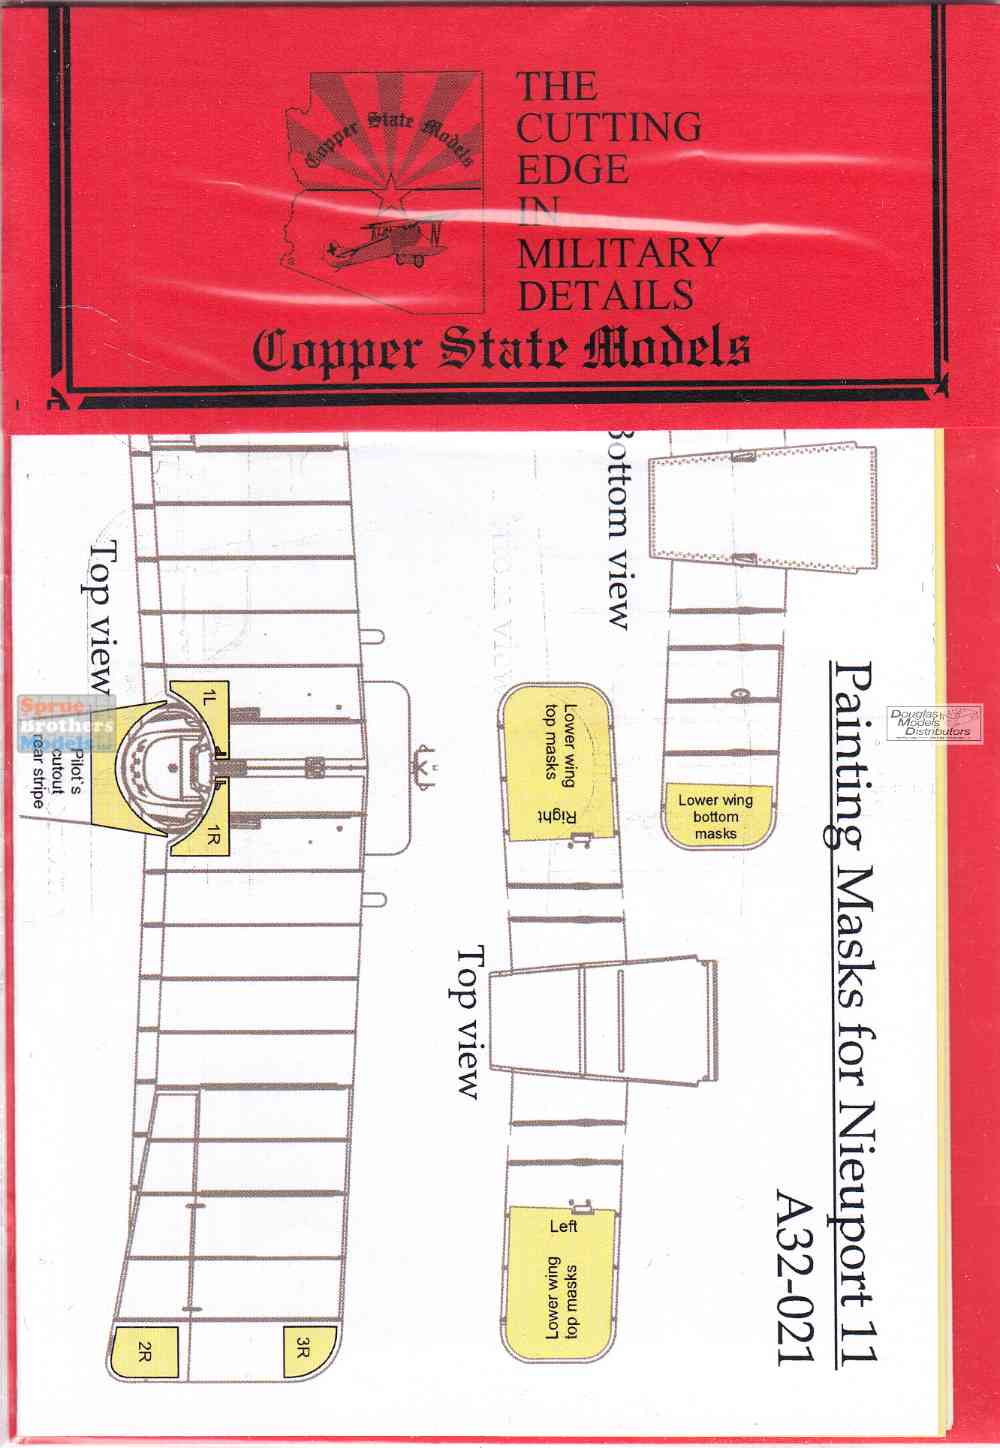 Copper State Models
THE
CUTTING
EDGE
IN
MILITARY
DETAILS
Copper State Models
Painting Masks for Nieuport 11
A32-021
Bottom view
Lower wing
bottom
masks
Top view
Lower wing
top masks
Right
Left
Lower wing
top masks
Top view
1L
1R
Pilot`s
cutout
rear stripe
2R
3R
Sprue
Brothers
Models
Douglas
Models
Distributors